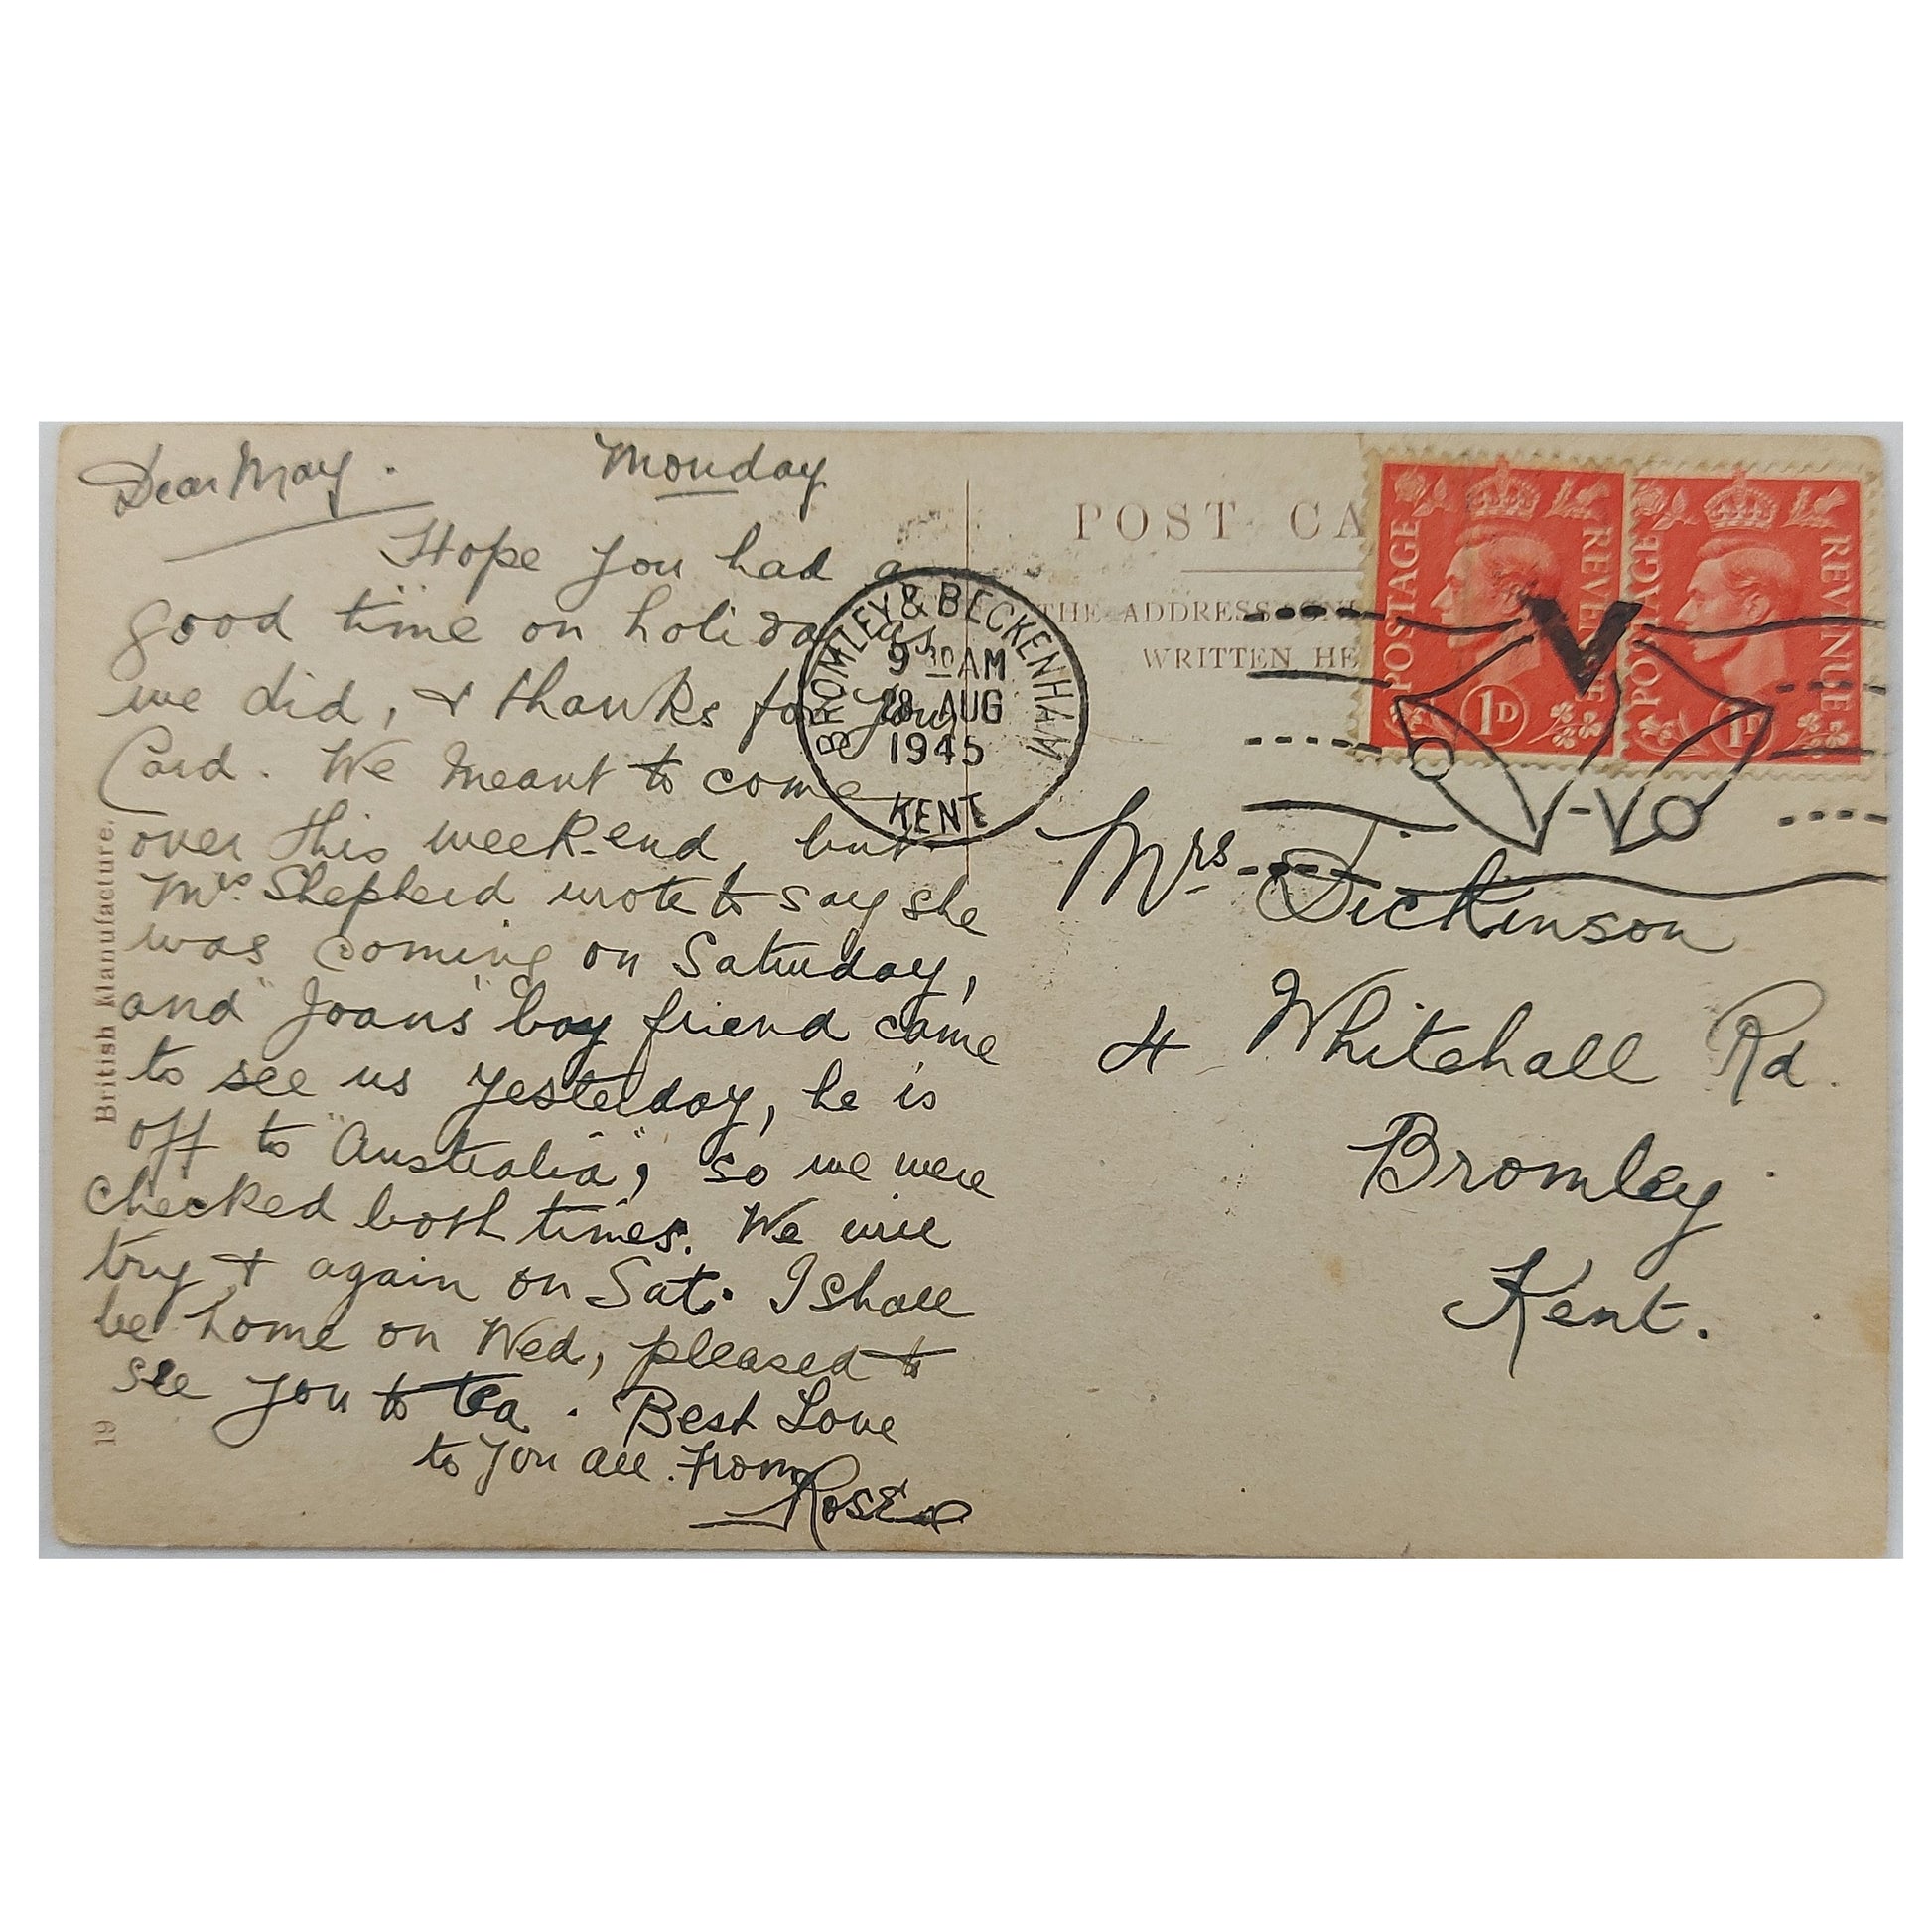 Dear May. Monday
Hope you had a
good time on holiday as
we did, & thanks for your
Card. We meant to come
over this week-end, but
Mrs Shepherd wrote to say she
was coming on Saturday,
and "Joans" boy friend came
to see us yesterday, he is
off to "Australia", so we were
checked both times. We will
try & again on Sat. I shall
be home on Wed, pleased to
see you to tea. Best Love
to you all. From
Rose
British Manufacture.
19
POST CA
THE ADDRESS ONL
WRITTEN HE
BROMLEY & BECKENHAM
9 30 AM
28 AUG
1945
KENT
POSTAGE REVENUE
1D
POSTAGE REVENUE
1D
V
Mrs. Dickinson
4 Whitehall Rd.
Bromley
Kent.